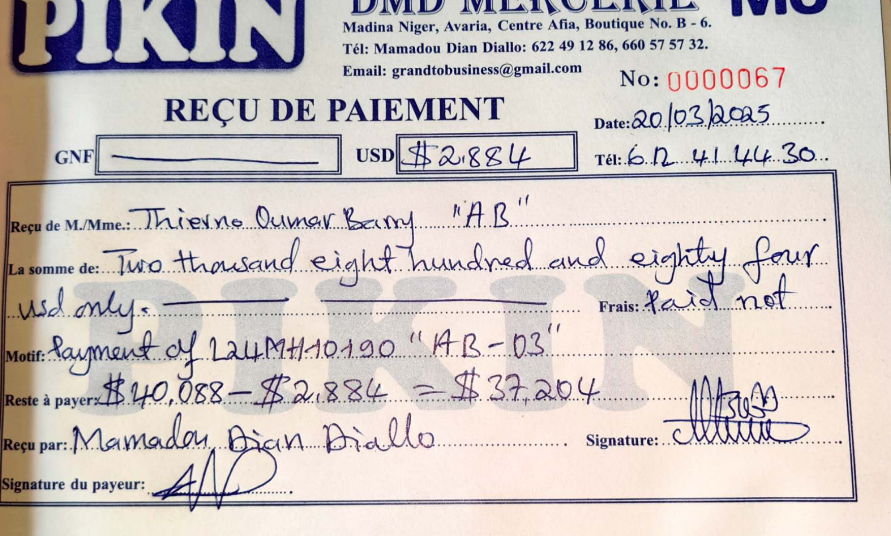 PIKIN
DMD MERCERIE
Madina Niger, Avaria, Centre Afia, Boutique No. B - 6.
Tél: Mamadou Dian Diallo: 622 49 12 86, 660 57 57 32.
Email: grandtobusiness@gmail.com
No: 0000067
REÇU DE PAIEMENT
Date: 20/03/2025
GNF USD $2.884 Tél: 612 41 44 30
Reçu de M./Mme.: Thierno Oumar Barry "AB"
La somme de: Two thousand eight hundred and eighty four
usd only. Frais: Paid not
Motif: Payment of L24MH10190 "AB-03"
Reste à payer: $40,088 - $2.884 = $37,204
Reçu par: Mamadou Dian Diallo Signature:
Signature du payeur:
PIKIN